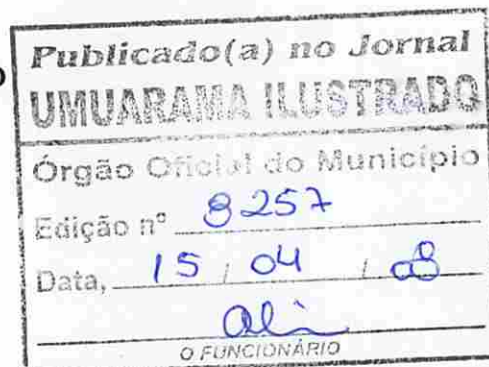 Publicado(a) no Jornal
UMUARAMA ILUSTRADO
Órgão Oficial do Município
Edição nº 8257
Data, 15 / 04 / 08
O FUNCIONÁRIO